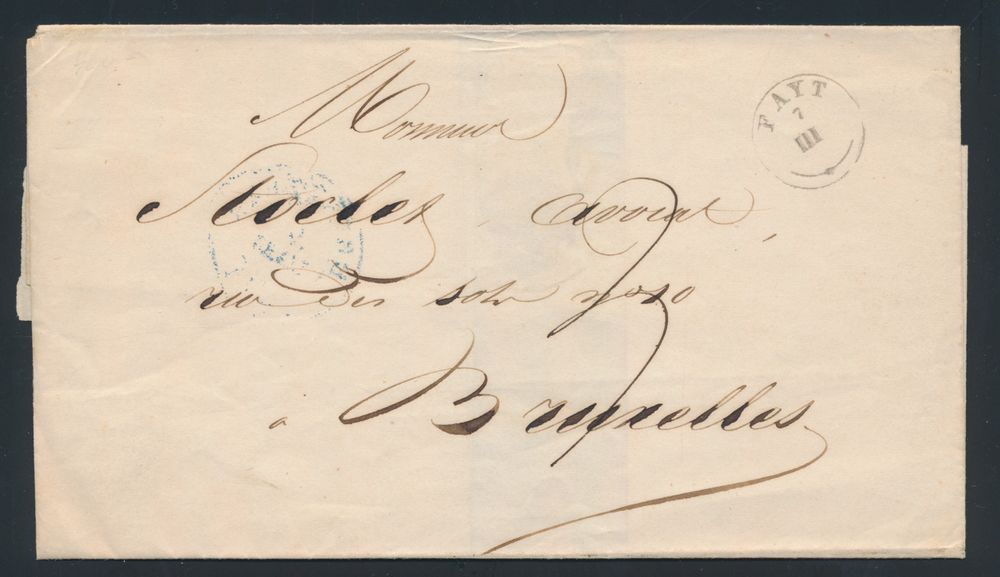 FAYT
7
III
Monsieur
Stoclet, avocat,
rue des sols nº 20
à Bruxelles